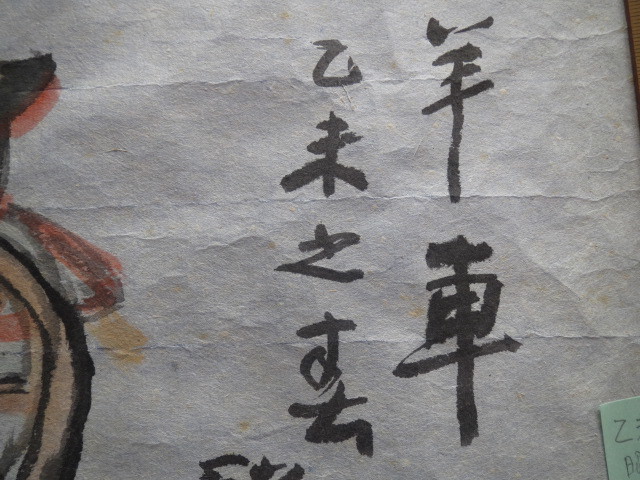 羊車
乙未之春
乙